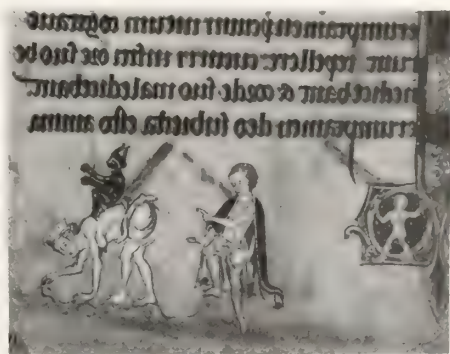 erumptamen pcium meum cogitaue
runt repellere cucurri insiti ore suo be
nedicebant & corde suo maledicebant.
erumptamen deo subiecta esto anima